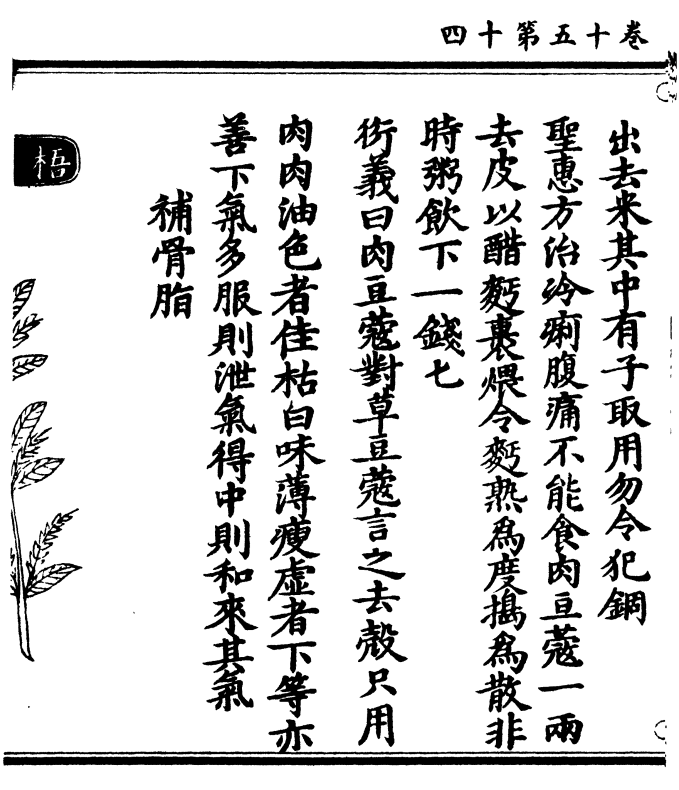 卷十五第十四
出去米其中有子取用勿令犯銅
聖惠方治冷痢腹痛不能食肉豆蔻一兩
去皮以醋麪裹煨令麪熟為度擣為散非
時粥飲下一錢匕
衍義曰肉豆蔻對草豆蔻言之去殻只用
肉肉油色者佳枯白味薄瘦虛者下等亦
善下氣多服則泄氣得中則和來其氣
補骨脂
梧